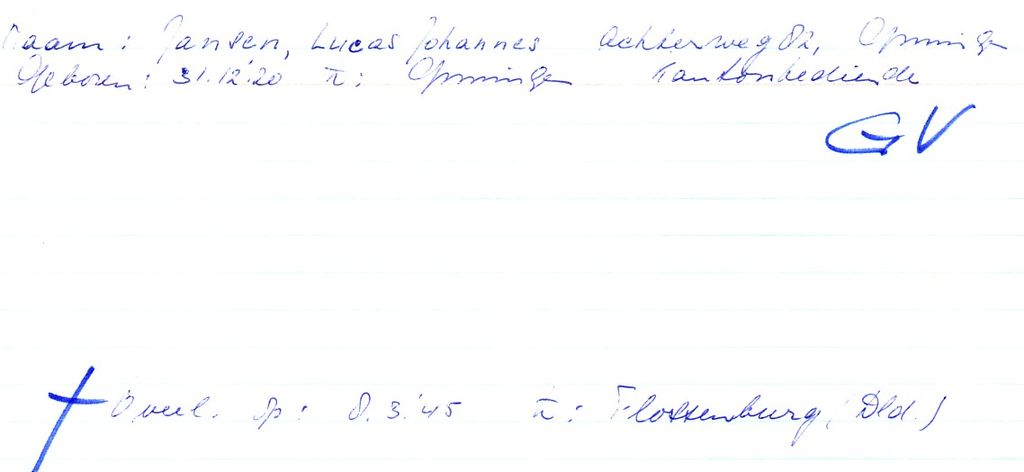 Naam: Jansen, Lucas Johannes Achterweg 82,
Geboren: 31.12.'20 te: Kantoorbediende
GV
Overl. op: 8.3.'45 te: Flossenburg (Dld.)